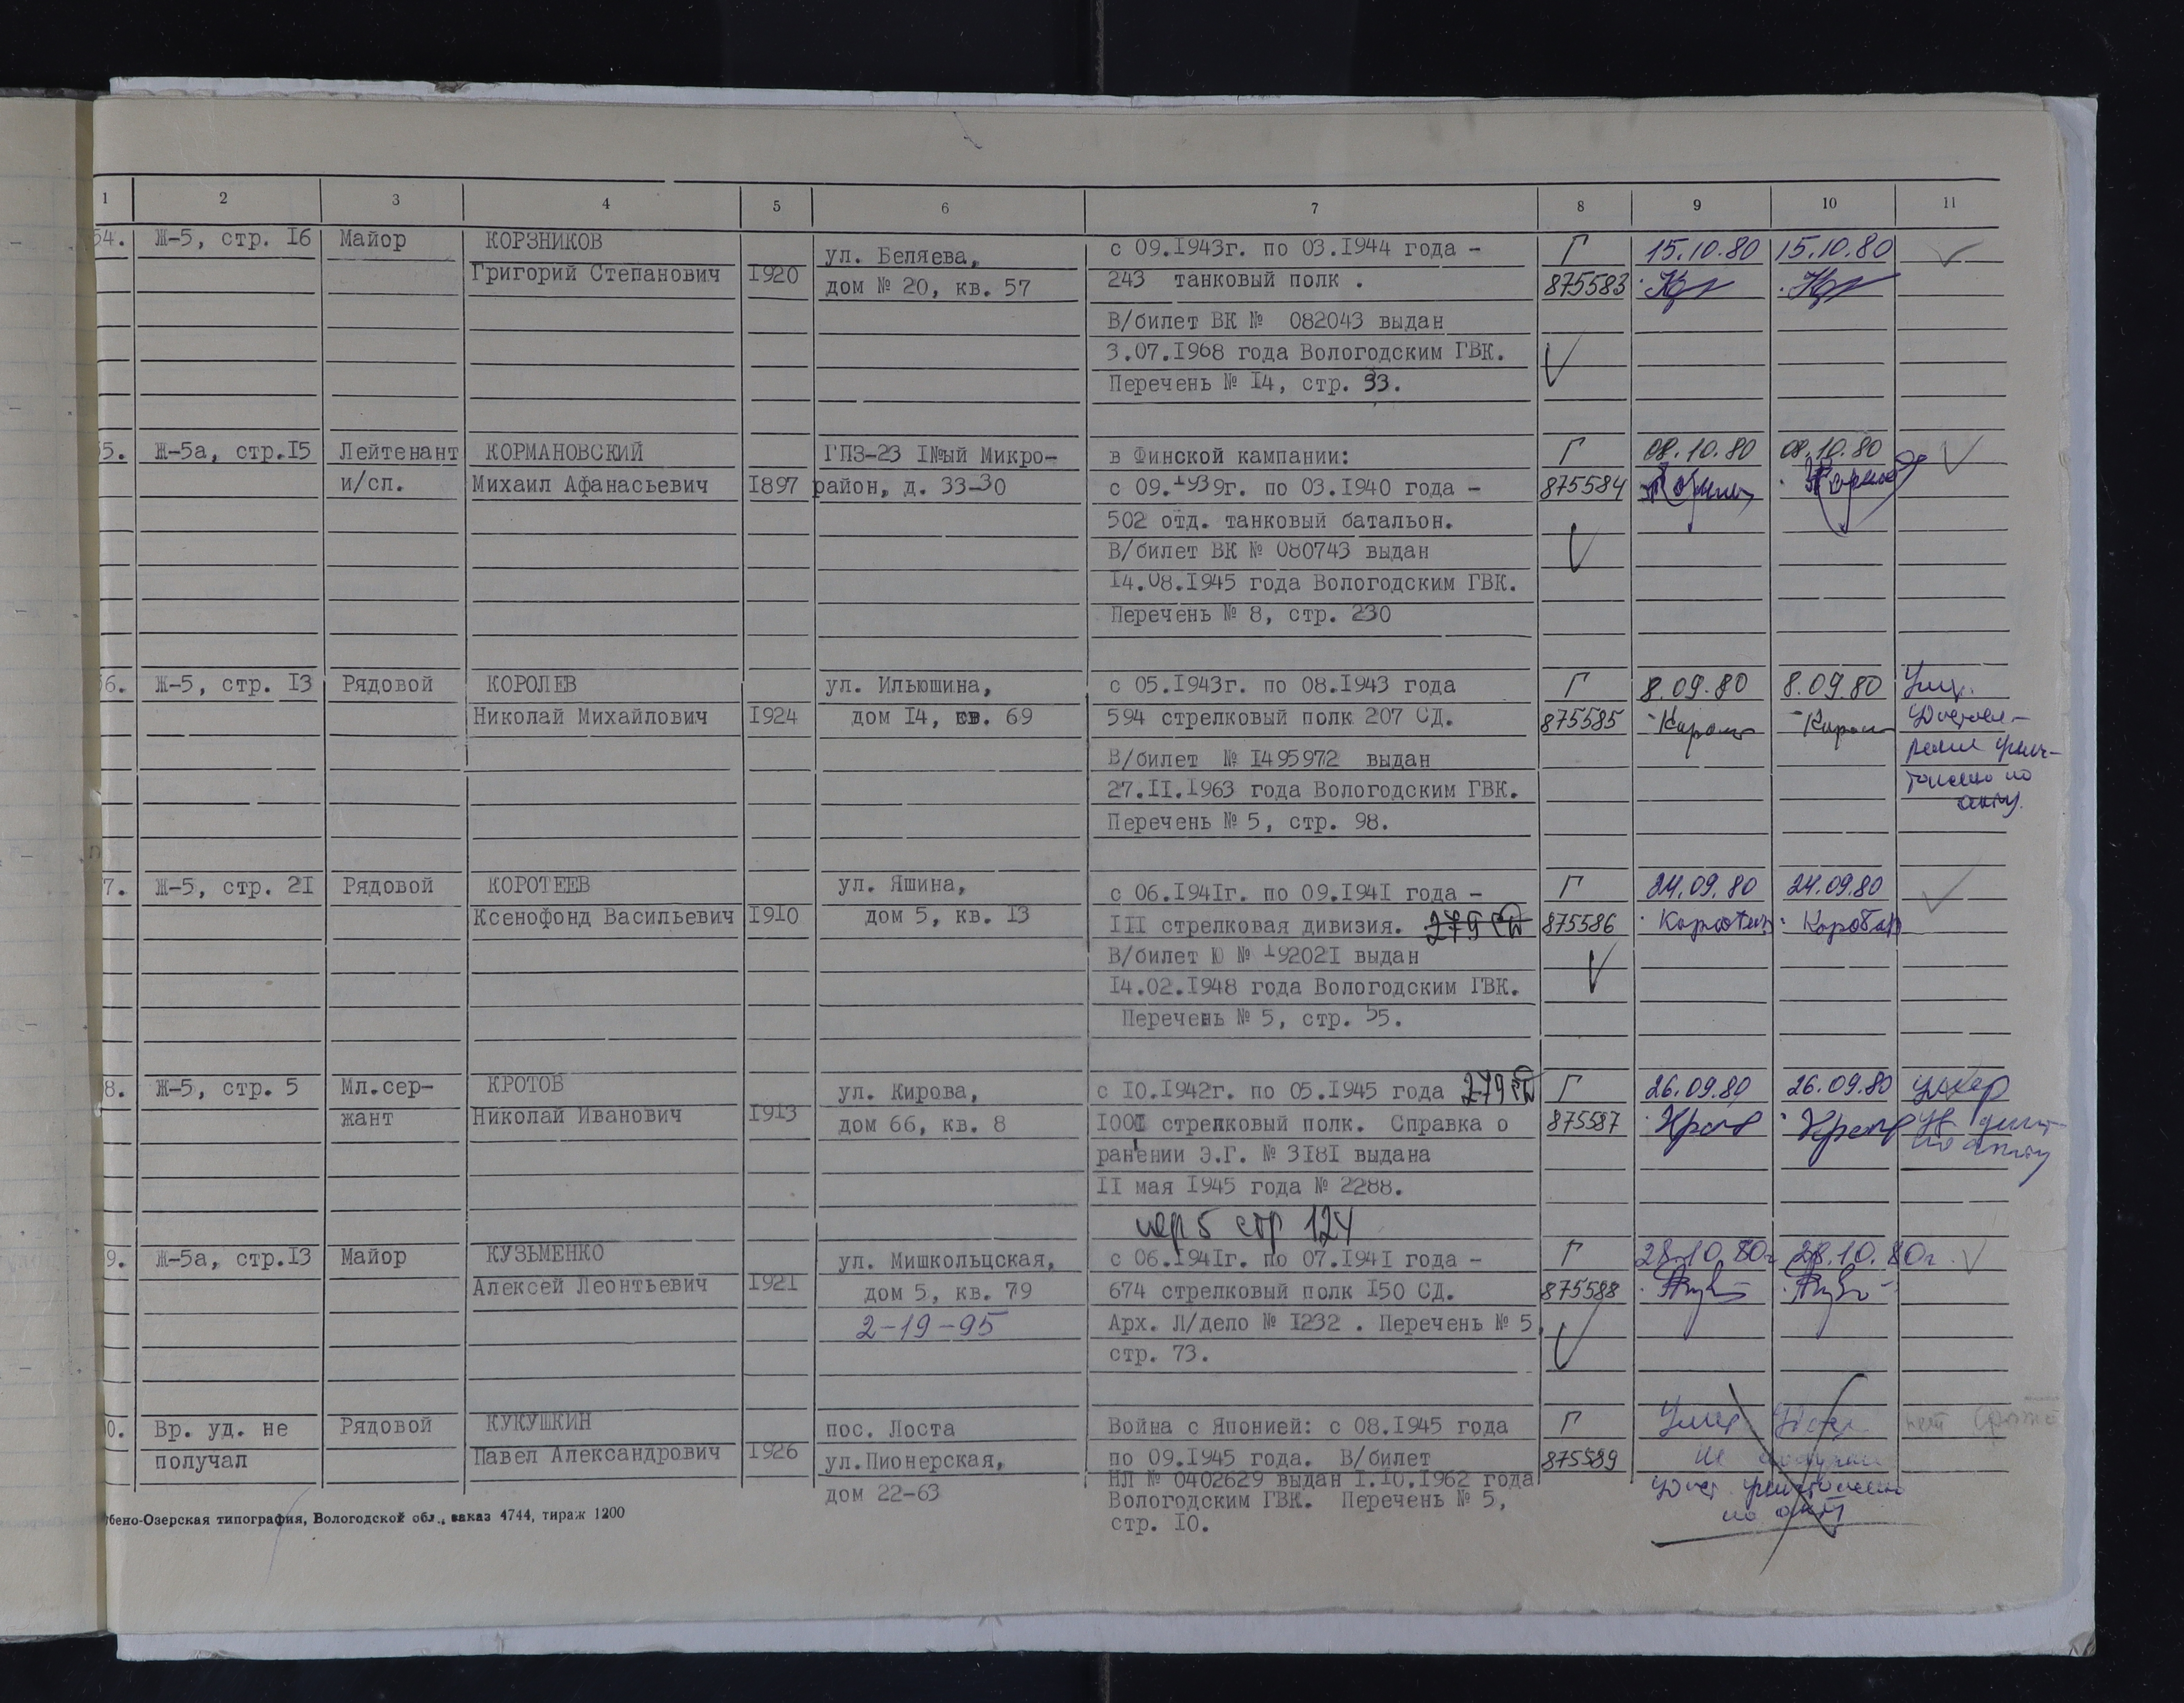 1 2 3 4 5 6 7 8 9 10 11
54. Ж-5, стр. I6 Майор КОРЗНИКОВ ул. Беляева, с 09.I943г. по 03.I944 года – Г 15.10.80 15.10.80
Григорий Степанович I920 дом № 20, кв. 57 243 танковый полк . 875583
В/билет ВК № 082043 выдан
3.07.I968 года Вологодским ГВК.
Перечень № I4, стр. 33.
5. Ж-5а, стр.I5 Лейтенант КОРМАНОВСКИЙ ГПЗ-23 I№ый Микро- в Финской кампании: Г 08.10.80 08.10.80
и/сп. Михаил Афанасьевич I897 район, д. 33-30 с 09.I939г. по 03.I940 года – 875584
502 отд. танковый батальон.
В/билет ВК № 080743 выдан
I4.08.I945 года Вологодским ГВК.
Перечень № 8, стр. 230
6. Ж-5, стр. I3 Рядовой КОРОЛЕВ ул. Ильюшина, с 05.I943г. по 08.I943 года Г 8.09.80 8.09.80
Николай Михайлович I924 дом I4, кв. 69 594 стрелковый полк 207 СД. 875585
В/билет № I495972 выдан
27.II.I963 года Вологодским ГВК. по
Перечень № 5, стр. 98. акту.
7. Ж-5, стр. 2I Рядовой КОРОТЕЕВ ул. Яшина, с 06.I94Iг. по 09.I94I года – Г 24.09.80 24.09.80
Ксенофонд Васильевич I9I0 дом 5, кв. I3 III стрелковая дивизия. 279 СД 875586
В/билет Ю № I9202I выдан
I4.02.I948 года Вологодским ГВК.
Перечень № 5, стр. 55.
8. Ж-5, стр. 5 Мл.сер- КРОТОВ ул. Кирова, с I0.I942г. по 05.I945 года 279 СД Г 26.09.80 26.09.80 умер
жант Николай Иванович I9I3 дом 66, кв. 8 I00I стрелковый полк. Справка о 875587 Кротов Кротов
ранении Э.Г. № 3I8I выдана по акту
II мая I945 года № 2288.
пер 5 стр 124
9. Ж-5а, стр.I3 Майор КУЗЬМЕНКО ул. Мишкольцская, с 06.I94Iг. по 07.I94I года – Г 28.10.80г 28.10.80г.
Алексей Леонтьевич I92I дом 5, кв. 79 674 стрелковый полк I50 СД. 875588
2-19-95 Арх. Л/дело № I232 . Перечень № 5,
стр. 73.
0. Вр. уд. не Рядовой КУКУШКИН пос. Лоста Война с Японией: с 08.I945 года Г нет
получал Павел Александрович I926 ул.Пионерская, по 09.I945 года. В/билет 875589 не
дом 22-63 НЛ № 0402629 выдан I.I0.I962 года удост. уничтожено
Вологодским ГВК. Перечень № 5, по акту
стр. I0.
бено-Озерская типография, Вологодской обл., заказ 4744, тираж 1200